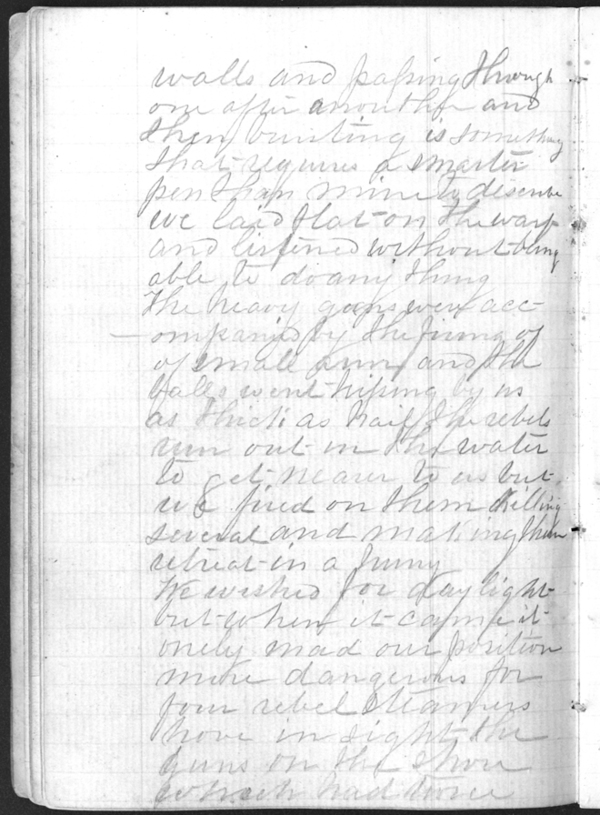 walls and passing through
one after annouther and
then bursting is something
that requires a smarter
pen than mine to describe
we laid flat on the warf
and listened without being
able to do any thing
The heavy guns were acc-
ompanied by the firing of
of small arms and the
balls went hissing by us
as thick as hail, the rebels
run out in the water
to get nearer to us but
we fired on them killing
several and making them
retreat in a hurry
We wished for daylight
but when it came it
onely mad our position
more dangerous for
four rebel steamers
hove in sight the
guns on the shore
which had